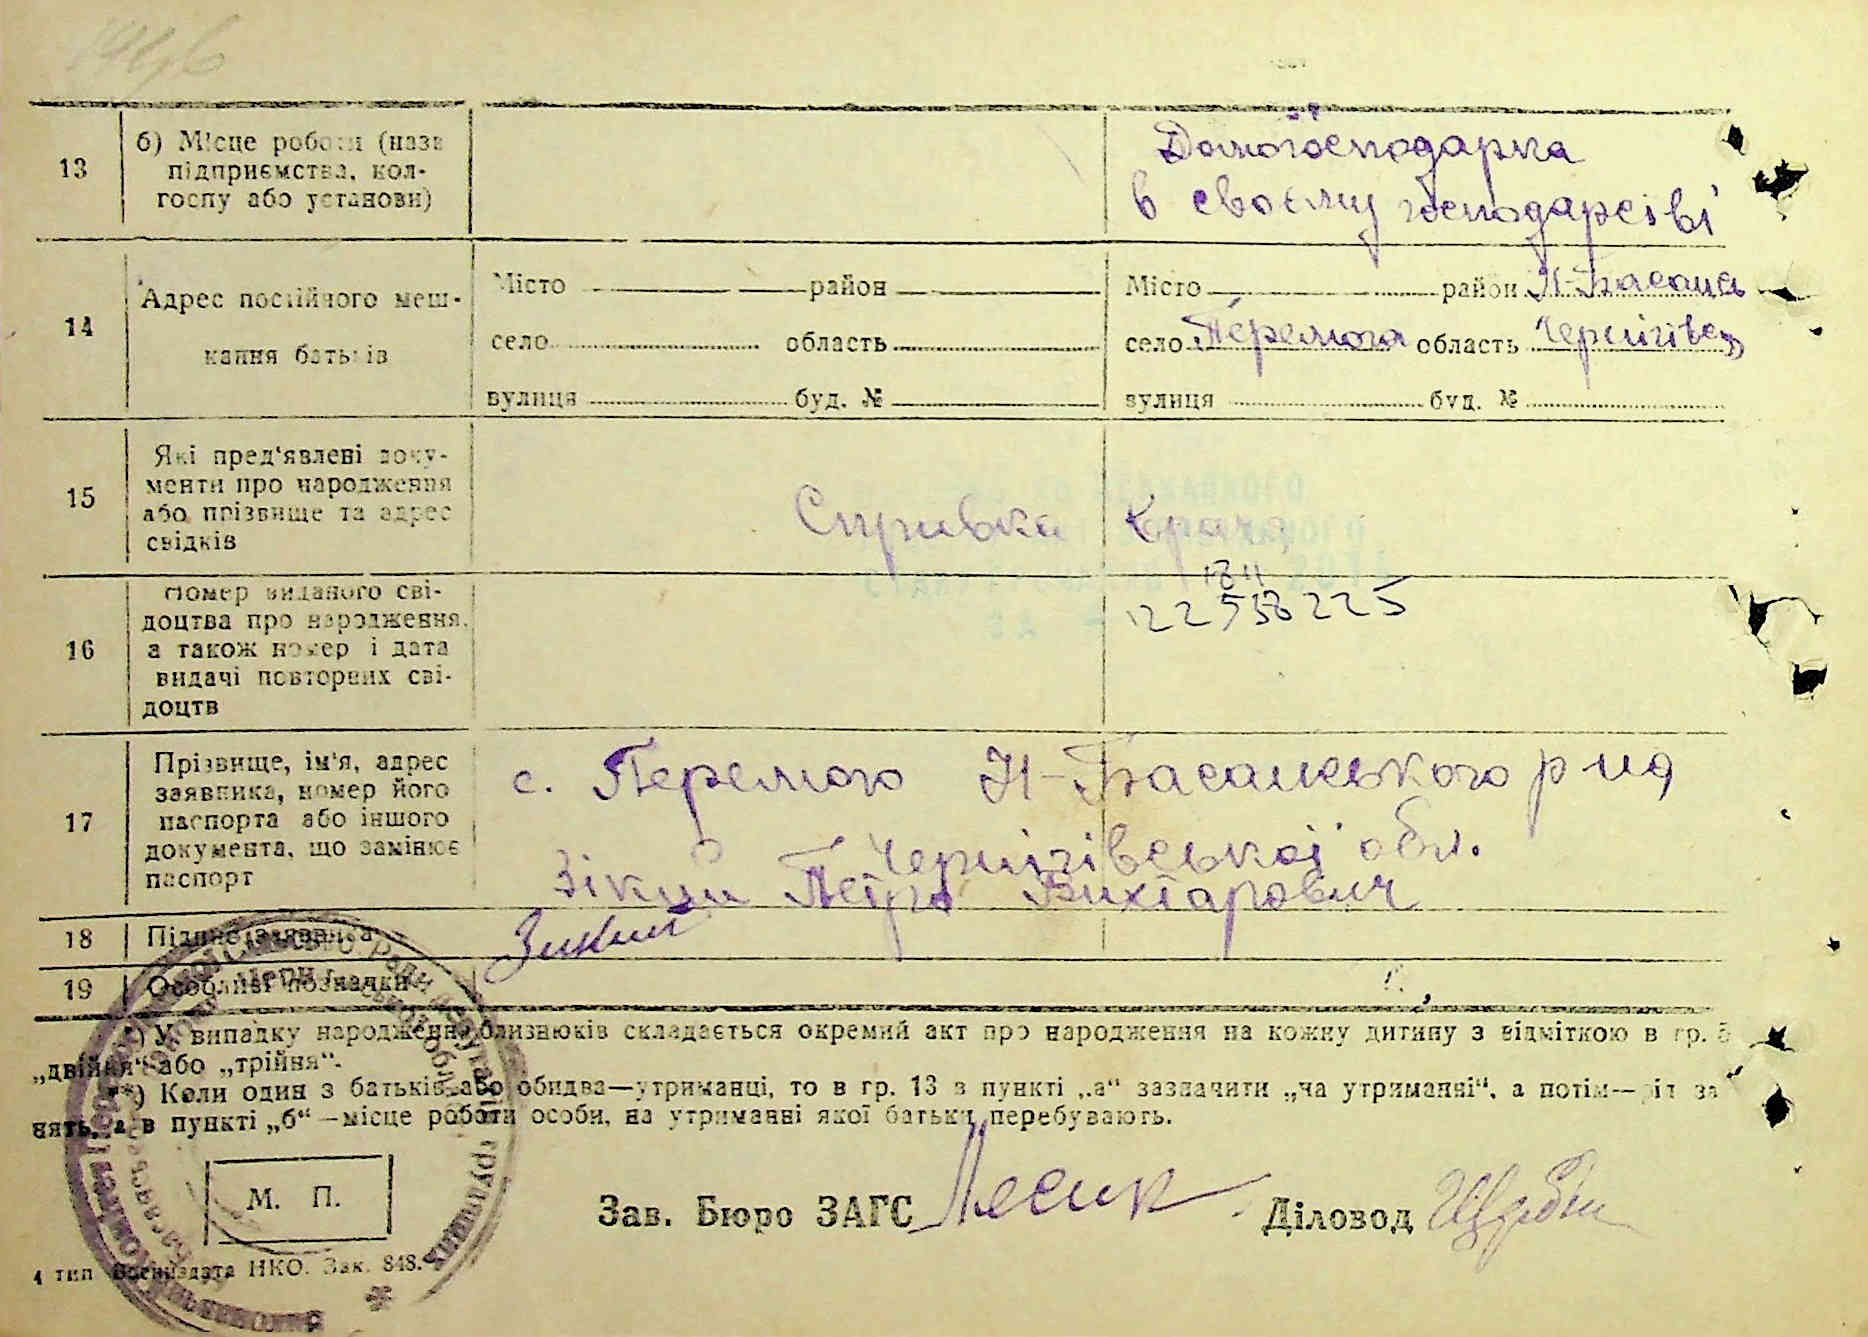 13
б) Місце роботи (назв
підприємства, кол-
госпу або установи)
Домогосподарка
в своєму господарстві
14
Адрес постійного меш-
кання батьків
Місто район
село область
вулиця буд. №
Місто район Н-Басань
село Перемога область Чернігівсь
вулиця буд. №
15
Які пред'явлені доку-
менти про народження
або прізвище та адрес
свідків
Справка
16
Номер виданого сві-
доцтва про народження,
а також номер і дата
видачі повторних сві-
доцтв
17
Прізвище, ім'я, адрес
заявника, номер його
паспорта або іншого
документа, що замінює
паспорт
с. Перемога Н-Басанського р-на
Чернігівської обл.
Зікий Петро Вихтарович
18
Підпис заявника
Зикий
19
Особливі позначки
*) У випадку народження близнюків складається окремий акт про народження на кожну дитину з відміткою в гр. 5
„двійня“ або „трійня“.
**) Коли один з батьків або обидва—утриманці, то в гр. 13 в пункті „а“ зазначити „на утриманні“, а потім—рід за
нять, а в пункті „б“—місце роботи особи, на утриманні якої батьки перебувають.
М. П.
Зав. Бюро ЗАГС Лесик
Діловод
4 тип Воениздата НКО. Зак. 848.